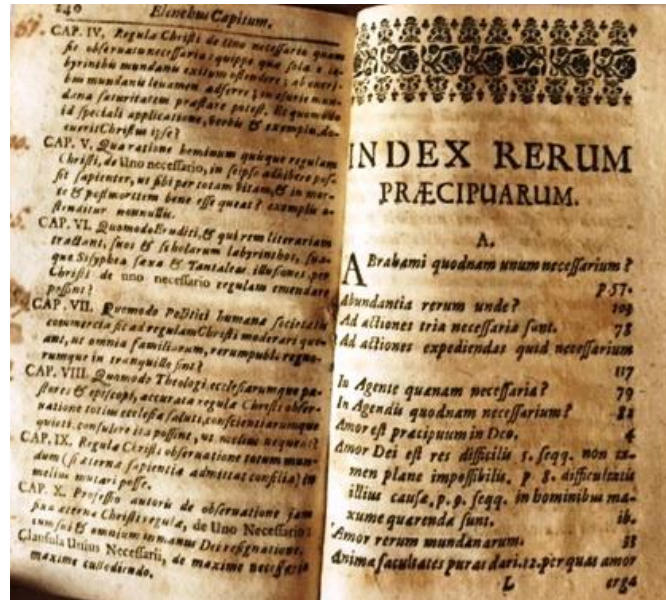 240 Elenchus Capitum.
CAP. IV. Regula Chriſti de Uno neceſſario quam
ſit obſervatu neceſſaria: quippe quæ ſola è la-
byrinthis mundanis exitum oſtendere; ab oneri-
bus mundanis levamen adferre; in eſurie mun-
dana ſaturitatem præſtare poteſt. Et quomodo
id ſpeciali applicatione, verbis & exemplis, do-
cuerit Chriſtus ipſe?
CAP. V. Qua ratione hominum quiſque regulam
Chriſti, de Uno neceſſario, in ſeipſo adhibere poſ-
ſit ſapienter, ut ſibi per totam vitam, & in mor-
te & poſt mortem bene eſſe queat? exemplis o-
ſtenditur nonnullis.
CAP. VI. Quomodo Eruditi, & qui rem literariam
tractant, ſuos & ſcholarum labyrinthos, ſua-
que Siſyphea ſaxa & Tantaleas illuſiones per
Chriſti de uno neceſſario regulam emendare
poſſint?
CAP. VII. Quomodo Politici humanæ ſocietatis
commercia ſic ad regulam Chriſti moderari que-
ant, ut omnia familiarum, rerumpubl. regno-
rumque in tranquillo ſint?
CAP. VIII. Quomodo Theologi eccleſiarumque pa-
ſtores & epiſcopi, accurata regulæ Chriſti obſer-
vatione totius eccleſiæ ſaluti, conſcientiarumque
quieti, conſulere ita poſſint, ut melius nequeant?
CAP. IX. Regulæ Chriſti obſervatione totum mun-
dum (ſi æterna ſapientia admittat conſilia) in
melius mutari poſſe.
CAP. X. Profeſſio autoris de obſervatione jam
ſua æternæ Chriſti regulæ, de Uno Neceſſario:
tum ſui & omnium in manus Dei reſignatione.
Clauſula Unius Neceſſarii, de maxime neceſſario
maxime cuſtodiendo.
INDEX RERUM
PRÆCIPUARUM.
A.
Abrahami quodnam unum neceſſarium?
p 57.
Abundantia rerum unde? 109
Ad actiones tria neceſſaria ſunt. 78
Ad actiones expediendas quid neceſſarium
117
In Agente quænam neceſſaria? 79
In Agendis quodnam neceſſarium? 82
Amor eſt præcipuum in Deo. 4
Amor Dei eſt res difficilis 5. ſeqq. non ta-
men plane impoſſibilis. p 8. difficultatis
illius cauſæ, p. 9. ſeqq. in hominibus ma-
xume quærenda ſunt. ib.
Amor rerum mundanarum. 33
Animæ facultates puras dari. 12. per quas amor
L erga